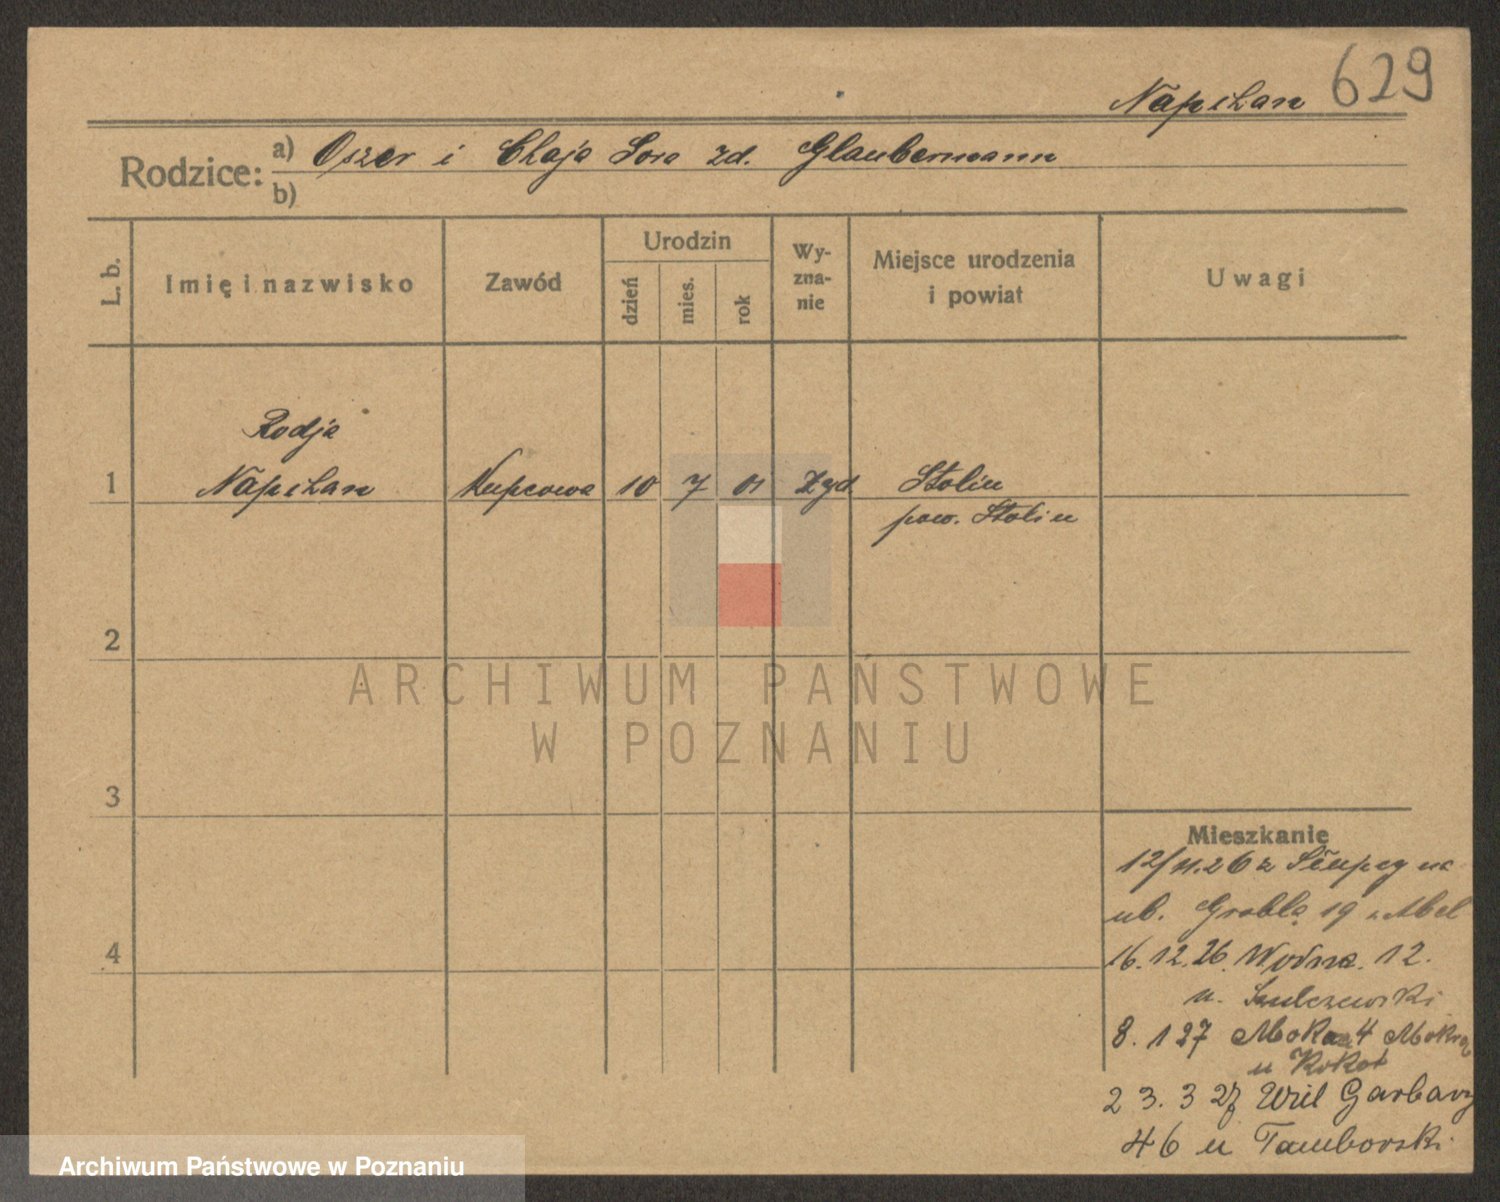 Napihan 629
Rodzice: a) Oszer i Chaja Sora zd. Glaubermann
b)
L. b. Imię i nazwisko Zawód Urodzin dzień mies. rok Wy-zna-nie Miejsce urodzenia i powiat Uwagi
Rodja
1 Napihan Kupcowa 10 7 01 Żyd Stolin
pow. Stolin
2
ARCHIWUM PAŃSTWOWE
W POZNANIU
3
Mieszkanie
12/11.26 z Słupcy na
ul. Grobla 19 u Abel
4
16.12.26. Wodna 12.
u. Szulczewski
8. 1 27 4 Mokra
u Kokot
23. 3 27 Garbary
46 u Tamborski
Archiwum Państwowe w Poznaniu